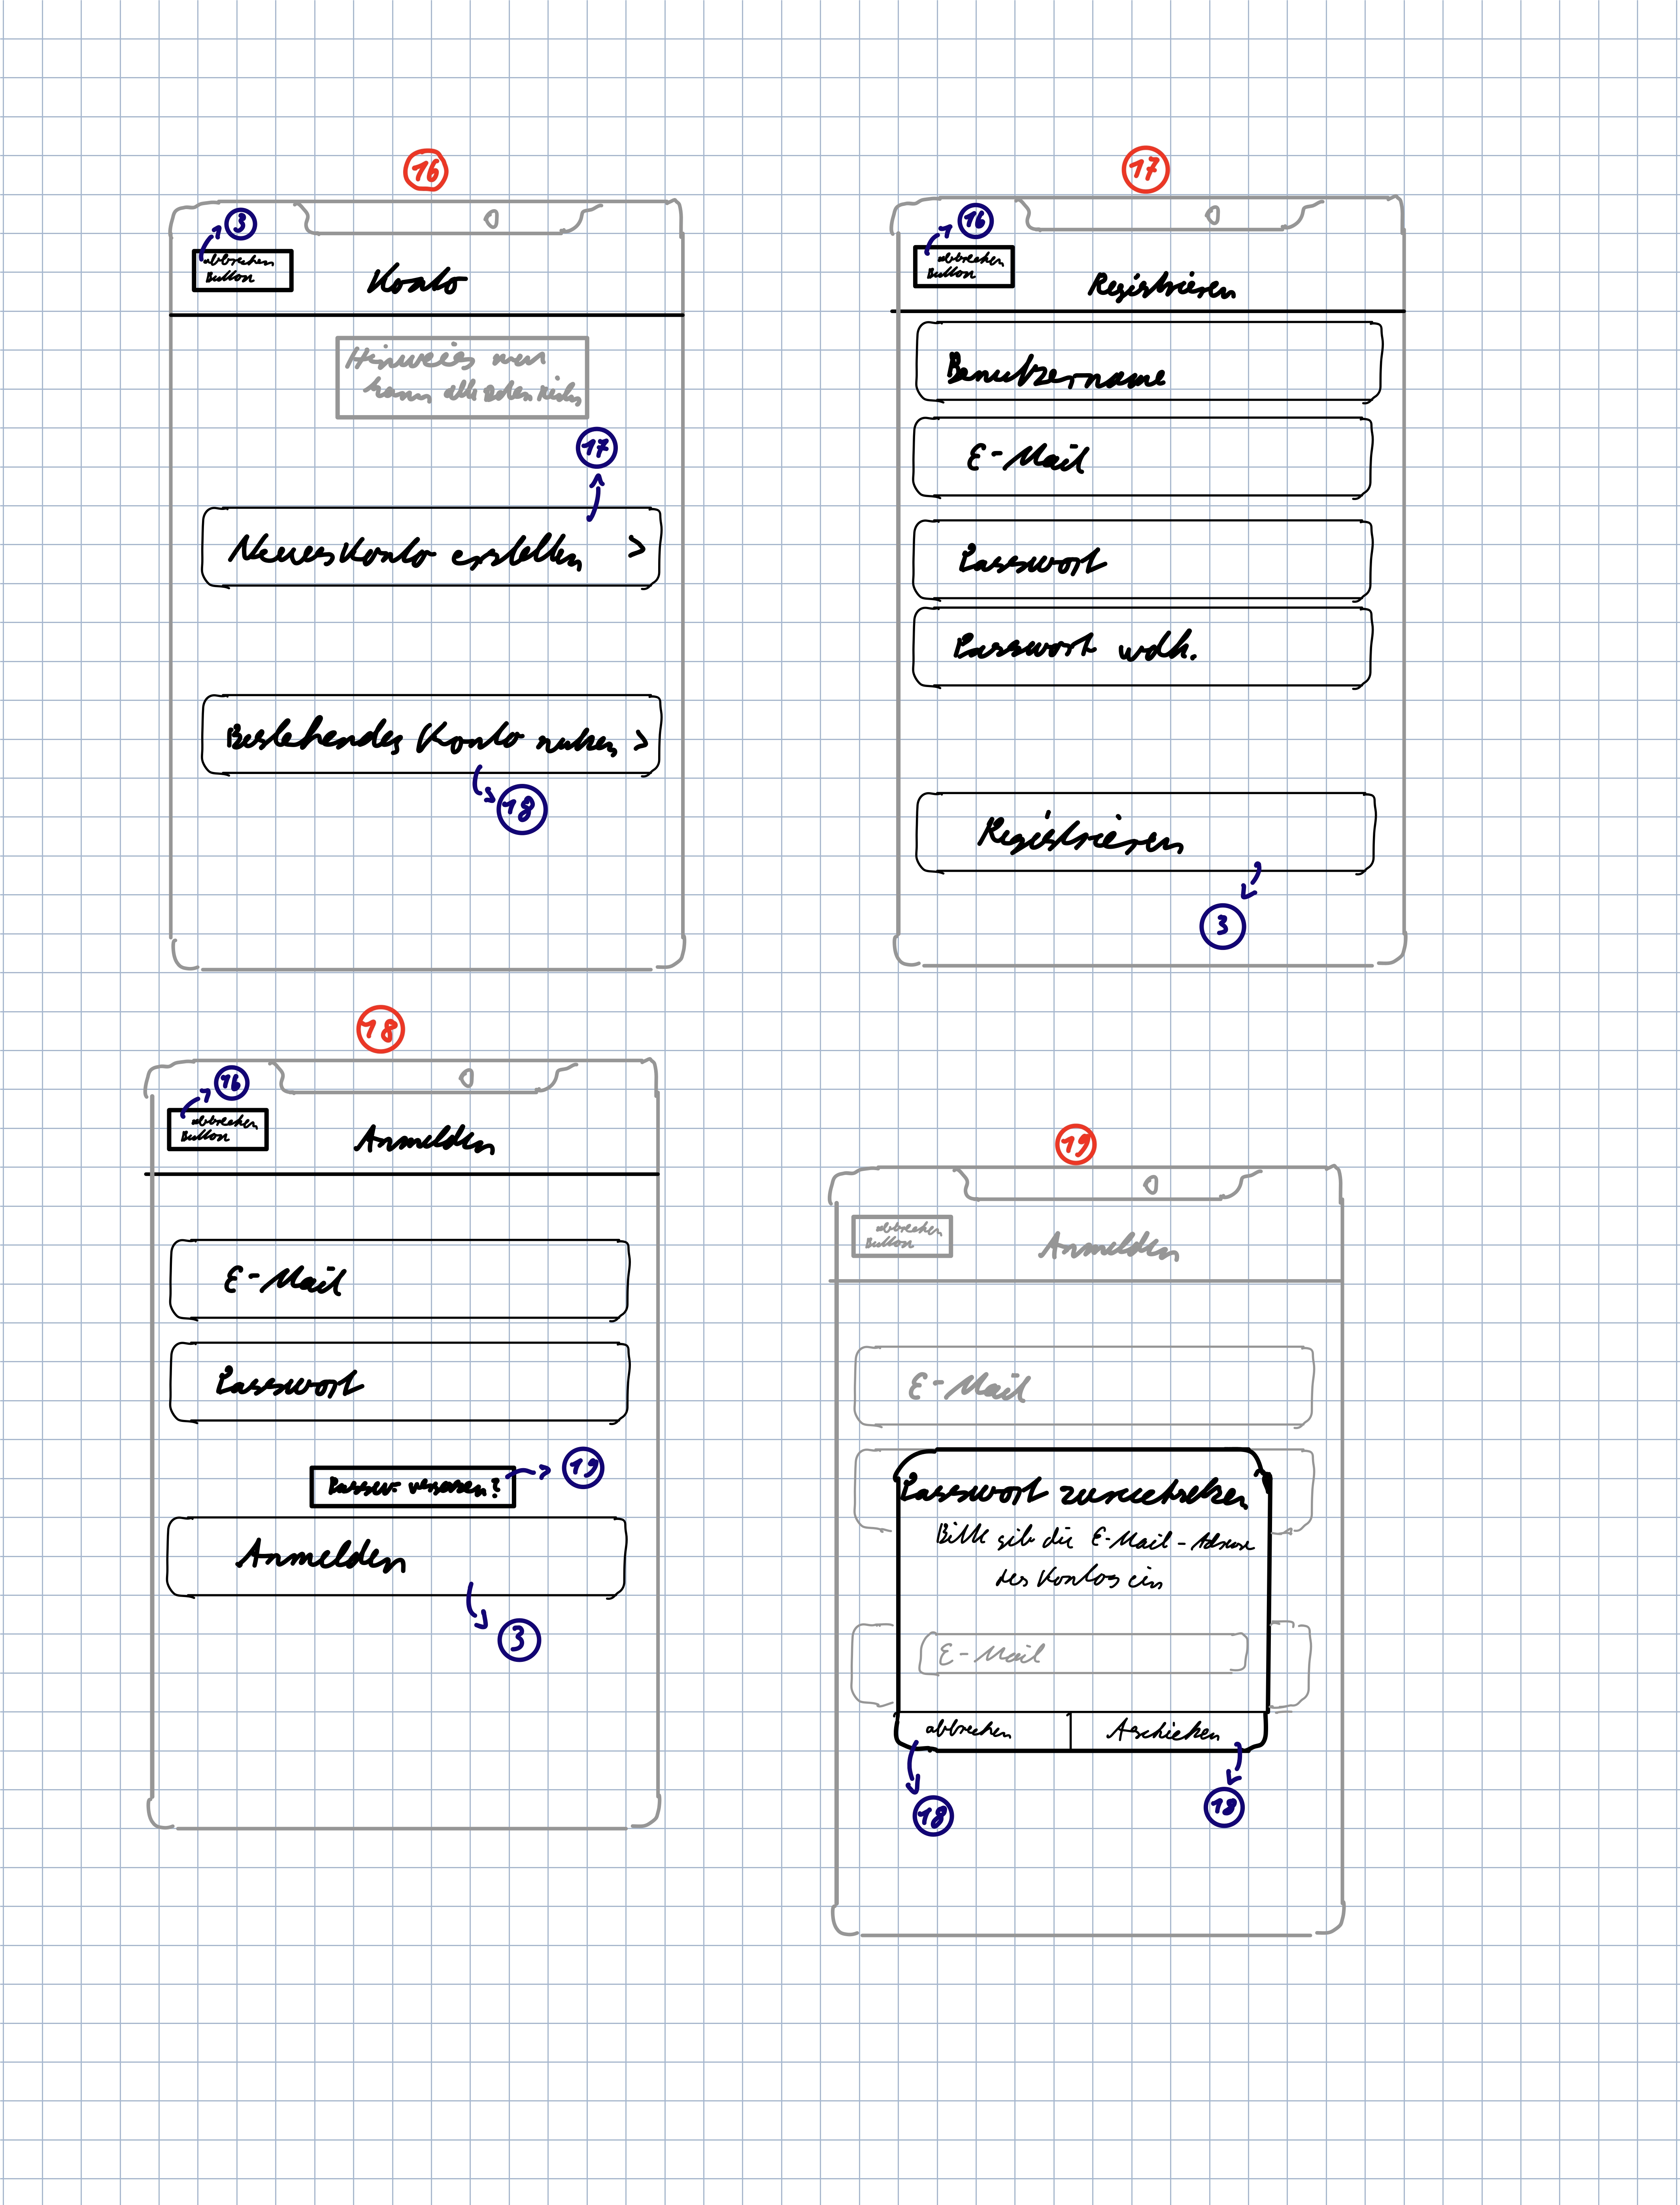 16
3
abbrechen
Button
Konto
Hinweis man
kann
17
Neues Konto erstellen >
Bestehendes Konto nutzen >
18
17
16
abbrechen
Button
Registrieren
Benutzername
E-Mail
Passwort
Passwort wdh.
Registrieren
3
18
16
abbrechen
Button
Anmelden
E-Mail
Passwort
19
Anmelden
3
19
abbrechen
Button
Anmelden
E-Mail
Passwort zurücksetzen
Bitte gib die E-Mail-Adresse
des Kontos ein
E-Mail
abbrechen
18
18